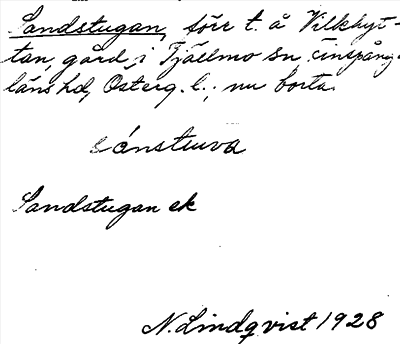 Sandstugan, förr t. å Vilkhyt-
tan, gård, i Tjällmo sn, Finspång-
läns hd, Österg. l.; nu borta.
sánstuva
Sandstugan ek
N. Lindqvist 1928